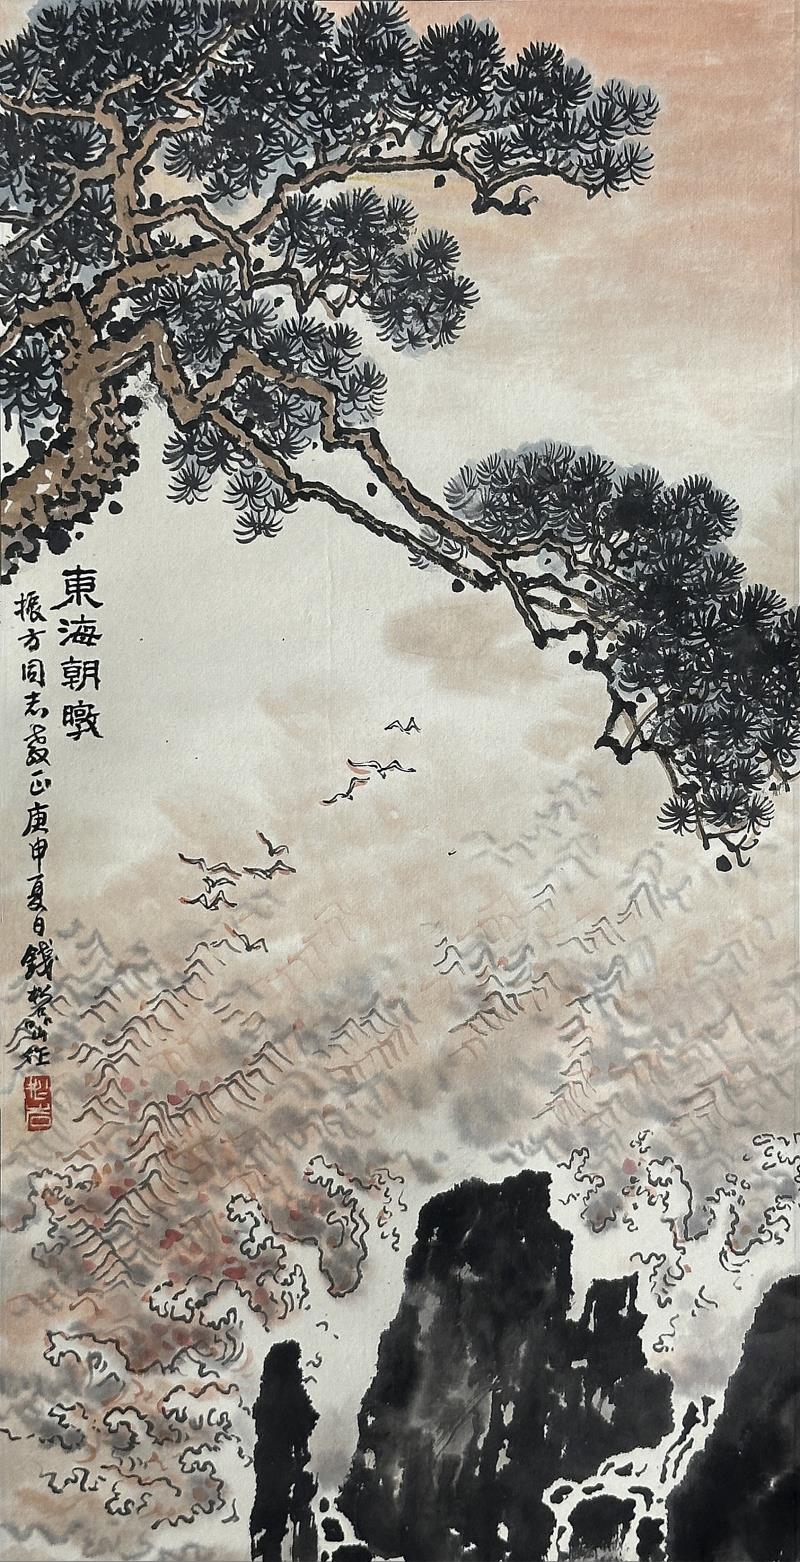 東海朝暾
振方同志教正庚申夏日錢松喦作
松喦